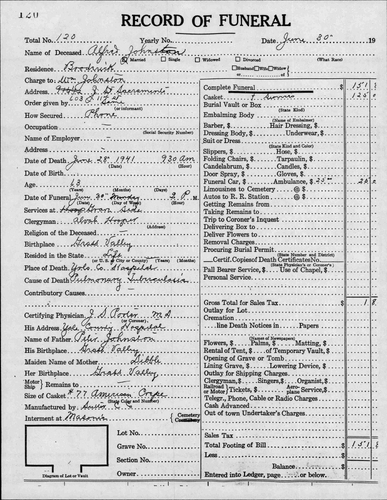 120
RECORD OF FUNERAL
Total No. 120 Yearly No. Date June 30 19
Name of Deceased Alfred Johnston
Married Single Widowed Divorced (What Race)
Residence Broderick Husband Wife Widow
Charge to Wm Johnston
Address J St Sacramento
Order given by Son
(or informant)
How Secured Phone
Occupation
(Social Security Number)
Name of Employer
Address
Date of Death June 28 1941 930 AM
Date of Birth
Age 63
(Years) (Months) (Days)
Date of Funeral Jun 30 Monday 2 P.M.
Services at Side
Clergyman
Religion of the Deceased
Birthplace Grass Valley
Resided in the State Life
Place of Death Yolo Co. Hospital
Cause of Death Pulmonary Tuberculosis
Contributory Causes
Certifying Physician J. D. M.D.
His Address Yolo County Hospital
Name of Father Peter Johnston
His Birthplace Grass Valley
Maiden Name of Mother
Her Birthplace Grass Valley
Motor Ship Remains to
Size of Casket #77 American Crepe
Manufactured by
Interment at Masonic Cemetery
Lot No.
Grave No.
Section No.
Owner
Diagram of Lot or Vault
Complete Funeral $ 151
Casket $ 125
Burial Vault or Box
(State Kind)
Embalming Body
(Name of Embalmer)
Barber, $ Hair Dressing, $
Dressing Body, $ Underwear, $
Suit or Dress
(State Kind and Color)
Slippers, $ Hose, $
Folding Chairs, $ Tarpaulin, $
Candelabrum, $ Candles, $
Door Spray, $ Gloves, $
Funeral Car, $ Ambulance, $ 25 25
Limousines to Cemetery @ $
Autos to R. R. Station @ $
Getting Remains from
Taking Remains to
Trip to Coroner's Inquest
Delivering Box to
Deliver Flowers to
Removal Charges
(State Number and District)
Procuring Burial Permit
Certif. Copies of Death Certificates No.
(State Physician's or Coroner's)
Pall Bearer Service, $ Use of Chapel, $
Personal Service
Gross Total for Sales Tax $ 1 8
Outlay for Lot
Cremation
line Death Notices in Papers
(Names of Newspapers)
Flowers, $ Palms, $ Matting, $
Rental of Tent, $ of Temporary Vault, $
Opening of Grave or Tomb
Lining Grave, $ Lowering Device, $
Outlay for Shipping Charges
Clergyman, $ Singers, $ Organist, $
Tickets, $ Service, $
Telegr., Phone, Cable or Radio Charges
Cash Advanced
Out of town Undertaker's Charges
Sales Tax
Total Footing of Bill $ 151
Less
Balance
Entered into Ledger, page or below.